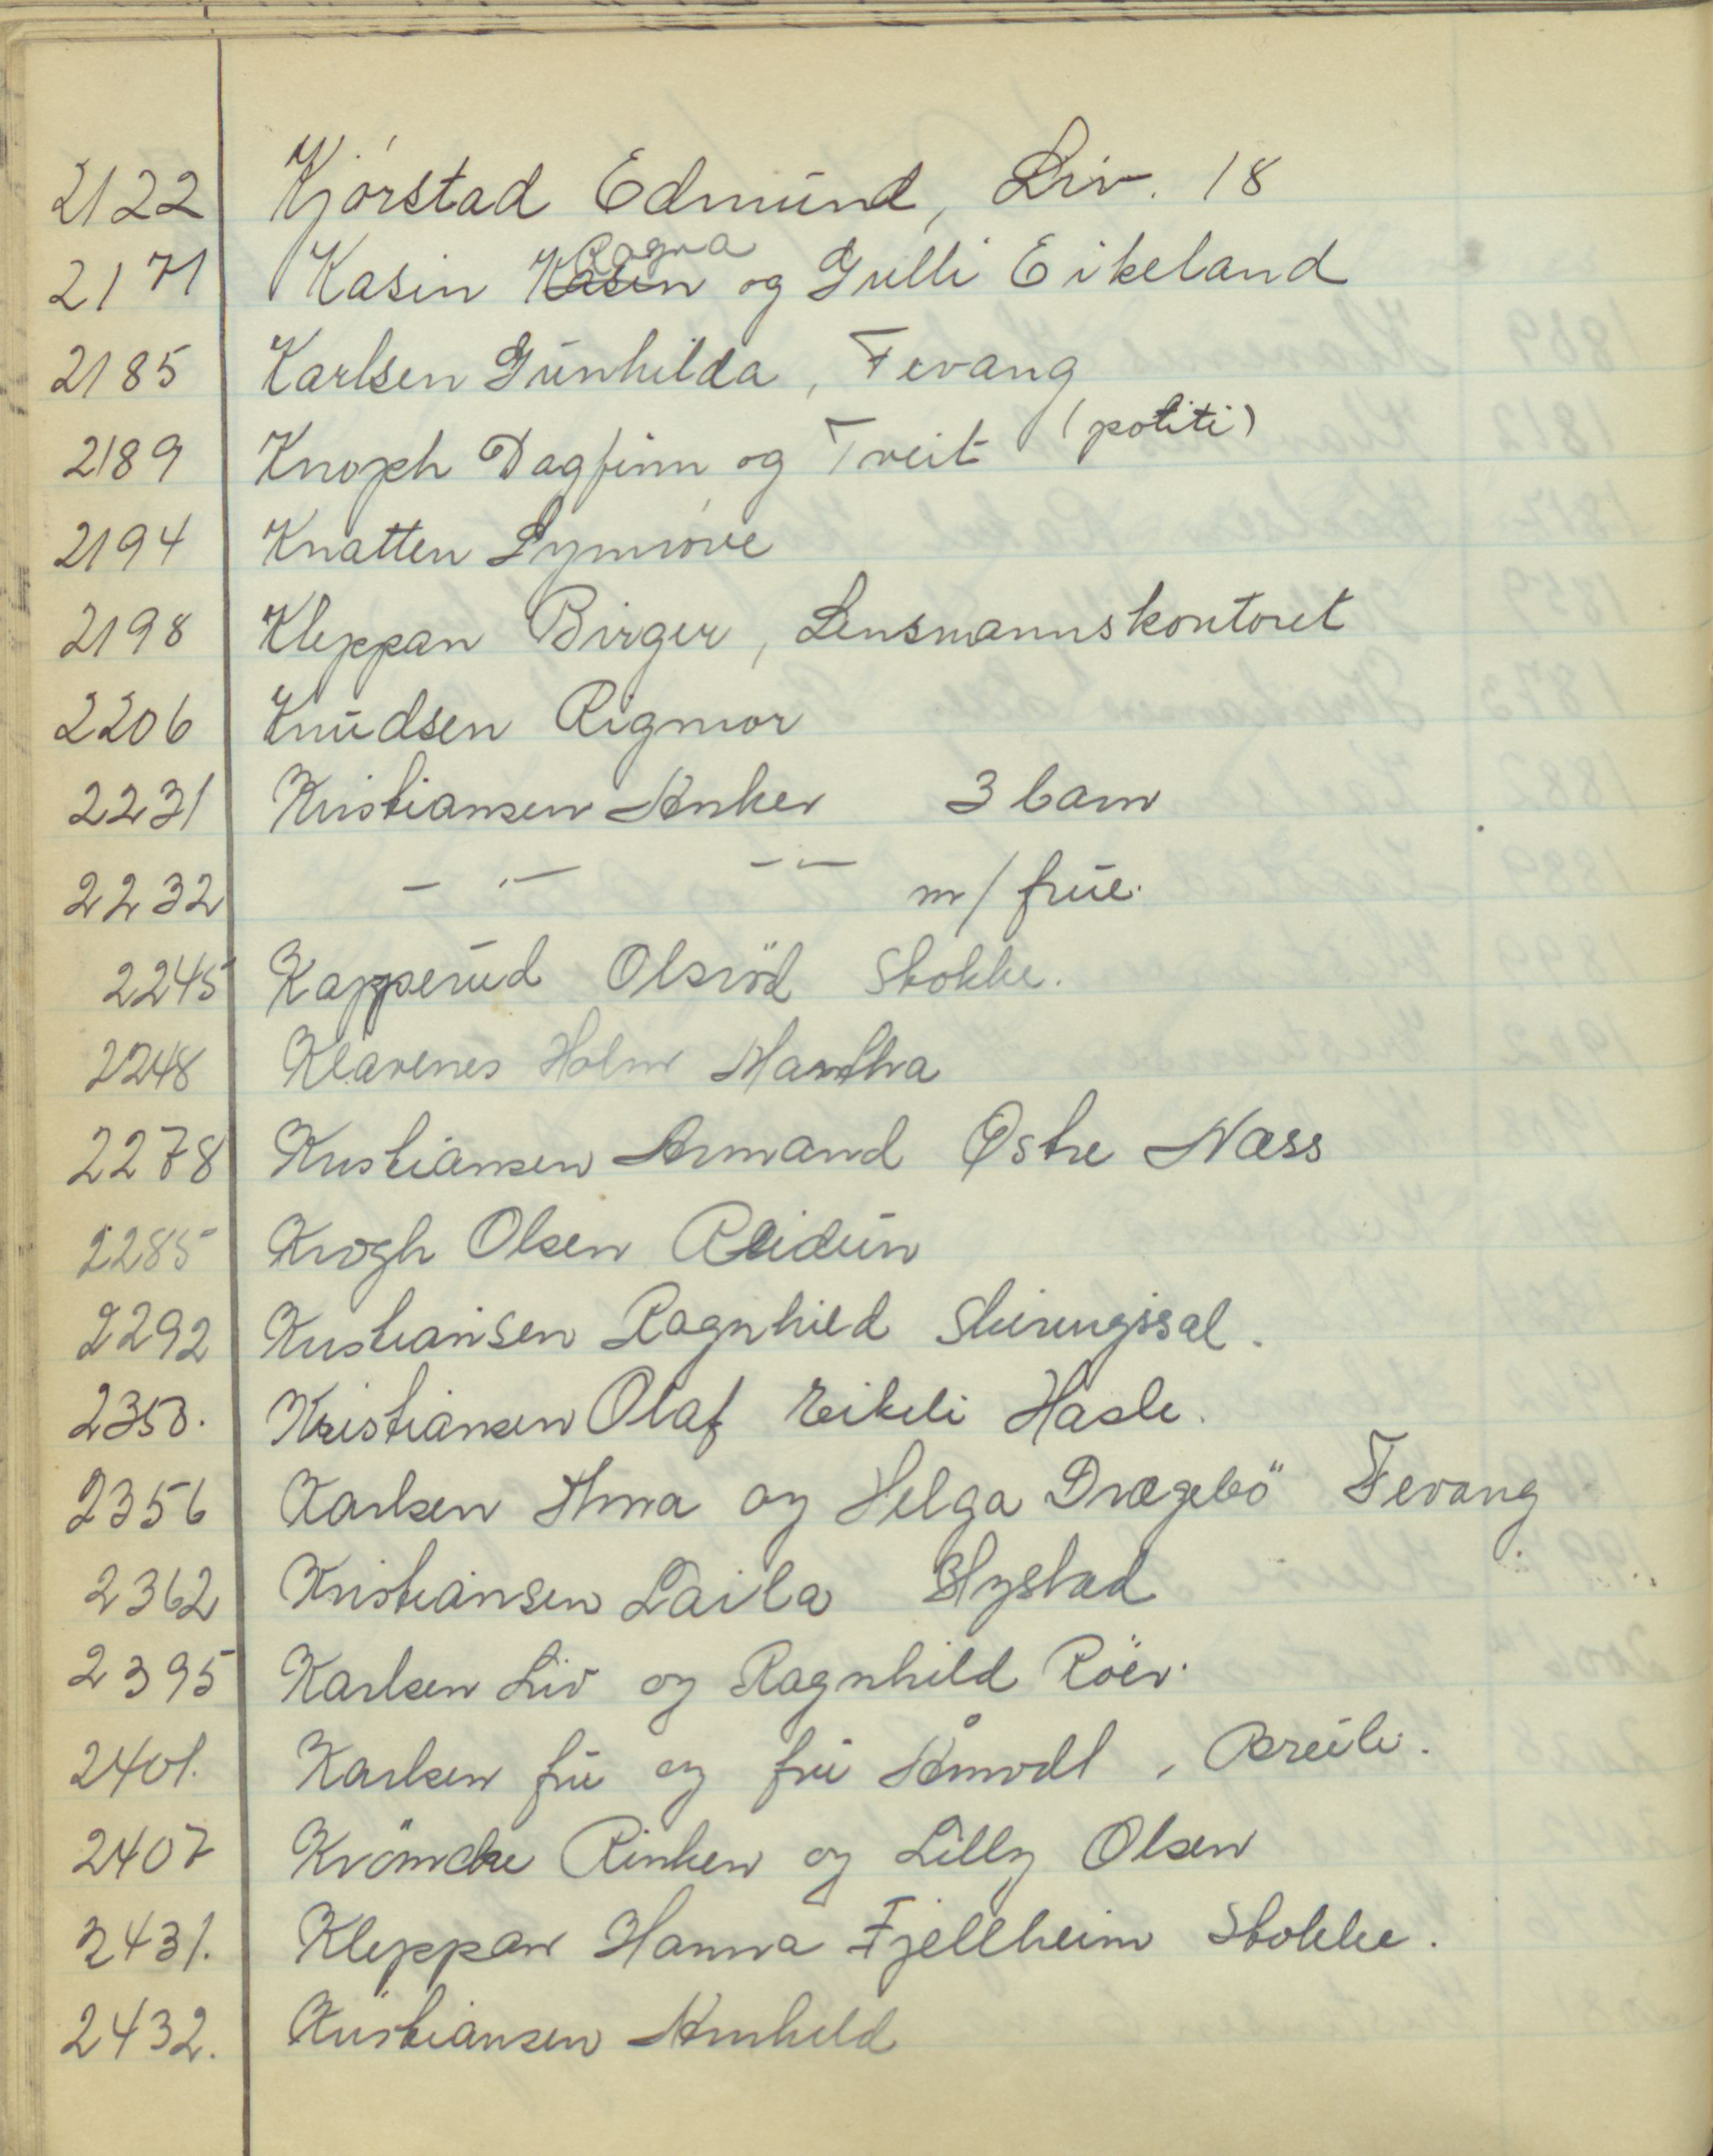 2122 Kjörstad Edmund, Liv. 18
2171 Kasin Ragna og Gulli Eikeland
2185 Karlsen Gunhilda, Fevang
2189 Knoph Dagfinn og Tveit (politi)
2194 Knatten Synnöve
2198 Kleppan Birger, Lensmannskontoret
2206 Knudsen Rigmor
2231 Kristiansen Anker 3 barn
2232 — " — — " — m/ frue.
2245 Kapperud Olsröd Stokke.
2248 Klavenes Holm Martha
2278 Kristiansen Armand Östre Næss
2285 Krogh Olsen Reidun
2292 Kristiansen Ragnhild Skiringssal.
2350. Kristiansen Olaf Eikeli Hasle.
2356 Karlsen Anna og Helga Dragebö Fevang
2362 Kristiansen Laila Hystad
2395 Karlsen Liv og Ragnhild Röer.
2401. Karlsen fru og fru Åmodt,
2407 Rinken og Lilly Olsen
2431. Kleppan Hanna Fjellheim Stokke.
2432. Kristiansen Arnhild